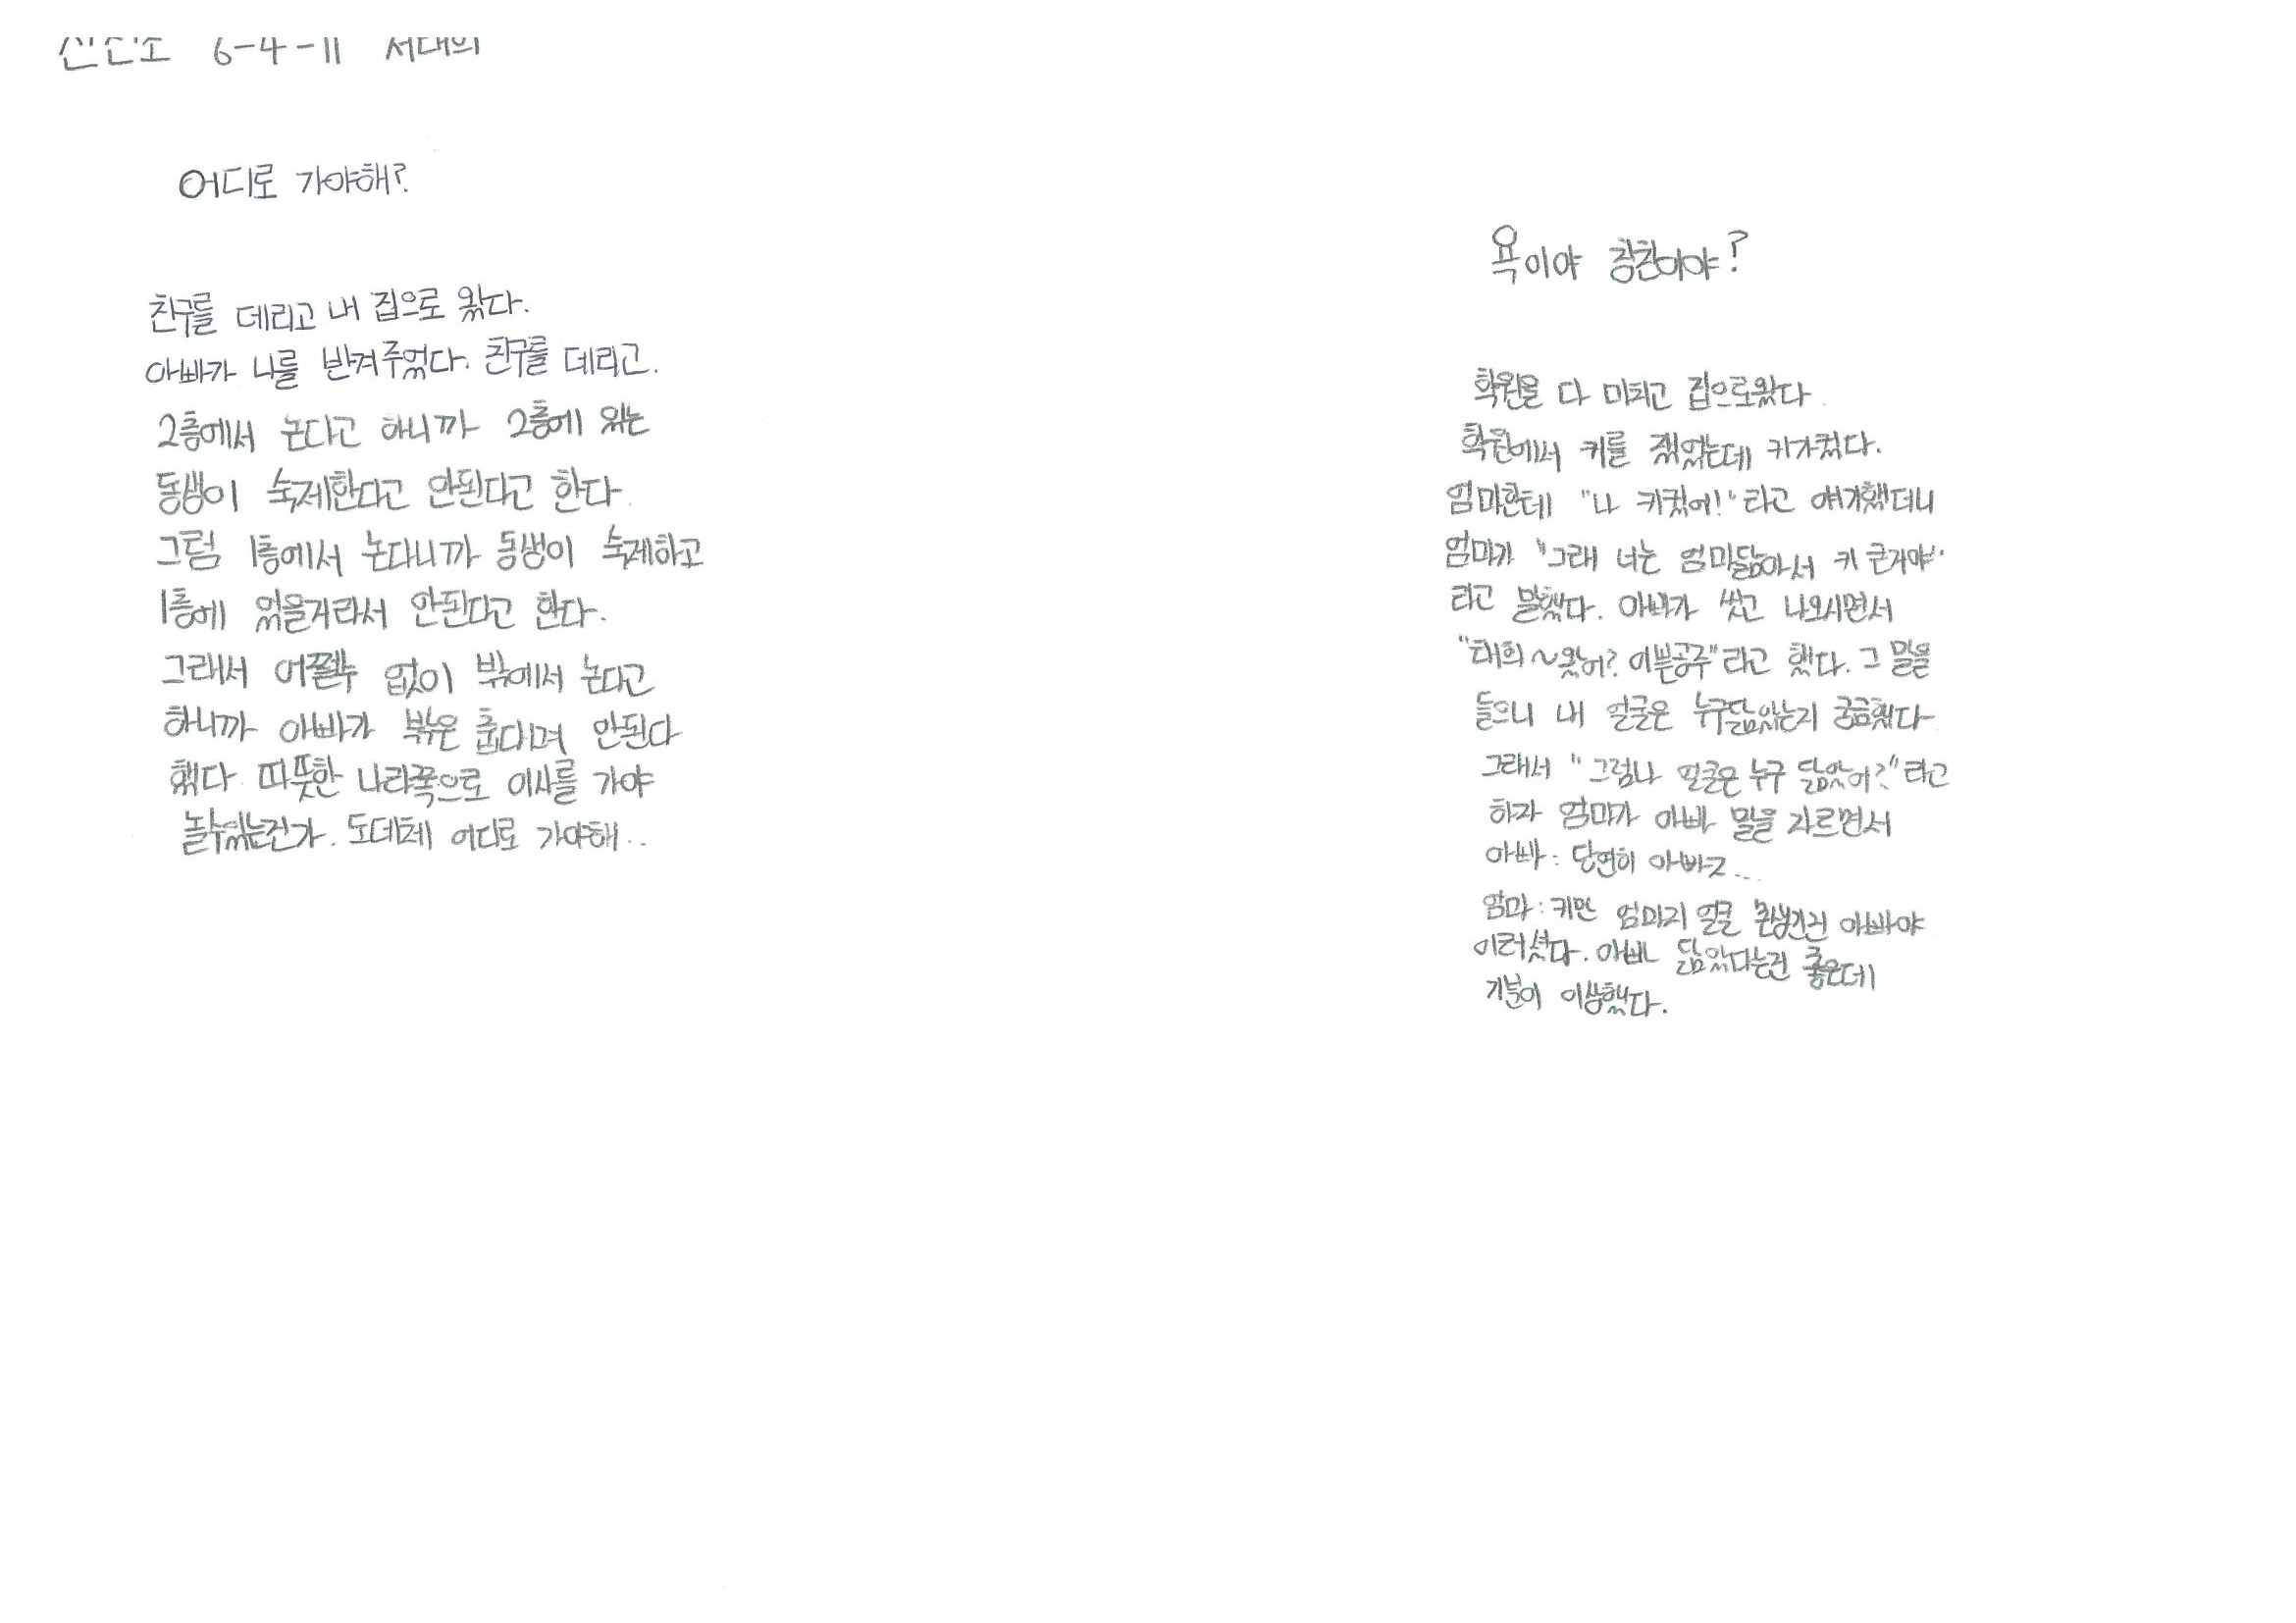 6-4-11 서태희
어디로 가야해?
친구를 데리고 내 집으로 왔다.
아빠가 나를 반겨주었다. 친구를 데리고.
2층에서 논다고 하니까 2층에 있는
동생이 숙제한다고 안된다고 한다.
그럼 1층에서 논다니까 동생이 숙제하고
1층에 있을거라서 안된다고 한다.
그래서 어쩔수 없이 밖에서 논다고
하니까 아빠가 밖은 춥다며 안된다
했다. 따뜻한 나라쪽으로 이사를 가야
놀수있는건가. 도데체 어디로 가야해..
욕이야 칭찬이야?
학원을 다 마치고 집으로왔다.
학원에서 키를 쟀었는데 키가컸다.
엄마한테 "나 키컸어!"라고 얘기했더니
엄마가 "그래 너는 엄마닮아서 키 큰거야"
라고 말했다. 아빠가 씻고 나오시면서
"태희~왔어? 이쁜공주"라고 했다. 그 말을
들으니 내 얼굴은 누구닮았는지 궁금했다
그래서 "그럼나 얼굴은 누구 닮았어?"라고
하자 엄마가 아빠 말을 자르면서
아빠: 당연히 아빠ㅈ...
엄마: 키만 엄마지 얼굴 못생긴건 아빠야
이러셨다. 아빠 닮았다는건 좋은데
기분이 이상했다.